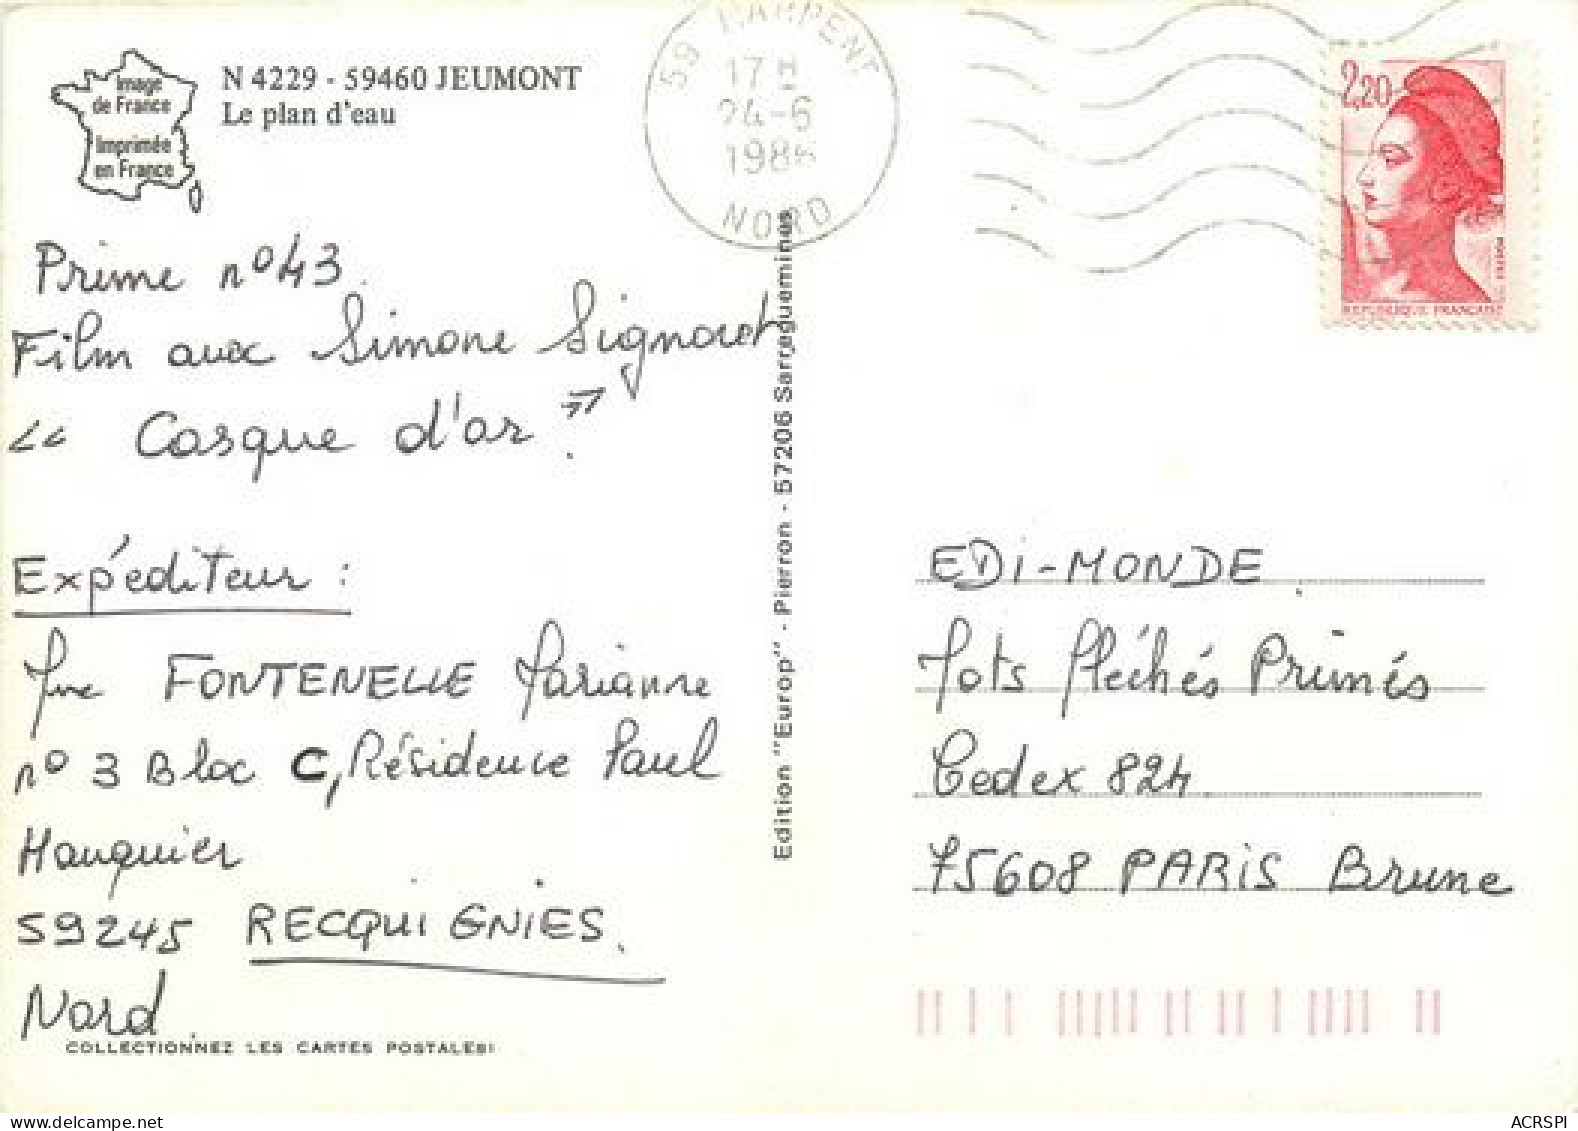 Image
de France
Imprimée
en France
N 4229 - 59460 JEUMONT
Le plan d'eau
59 MARPENT
17 H
24-6
1986
NORD
2,20
REPUBLIQUE FRANÇAISE
Prime n°43.
Film avec Simone Signoret
<< Casque d'or >>.
Expéditeur :
FONTENELLE Marianne
n° 3 Bloc C, Résidence Paul
Hauquier
59245 RECQUIGNIES.
Nord.
COLLECTIONNEZ LES CARTES POSTALES!
Edition "Europ" - Pierron - 57206 Sarreguemines
EDI-MONDE.
Mots fléchés Primés
Cedex 824
75608 PARIS Brune
ACRSPI